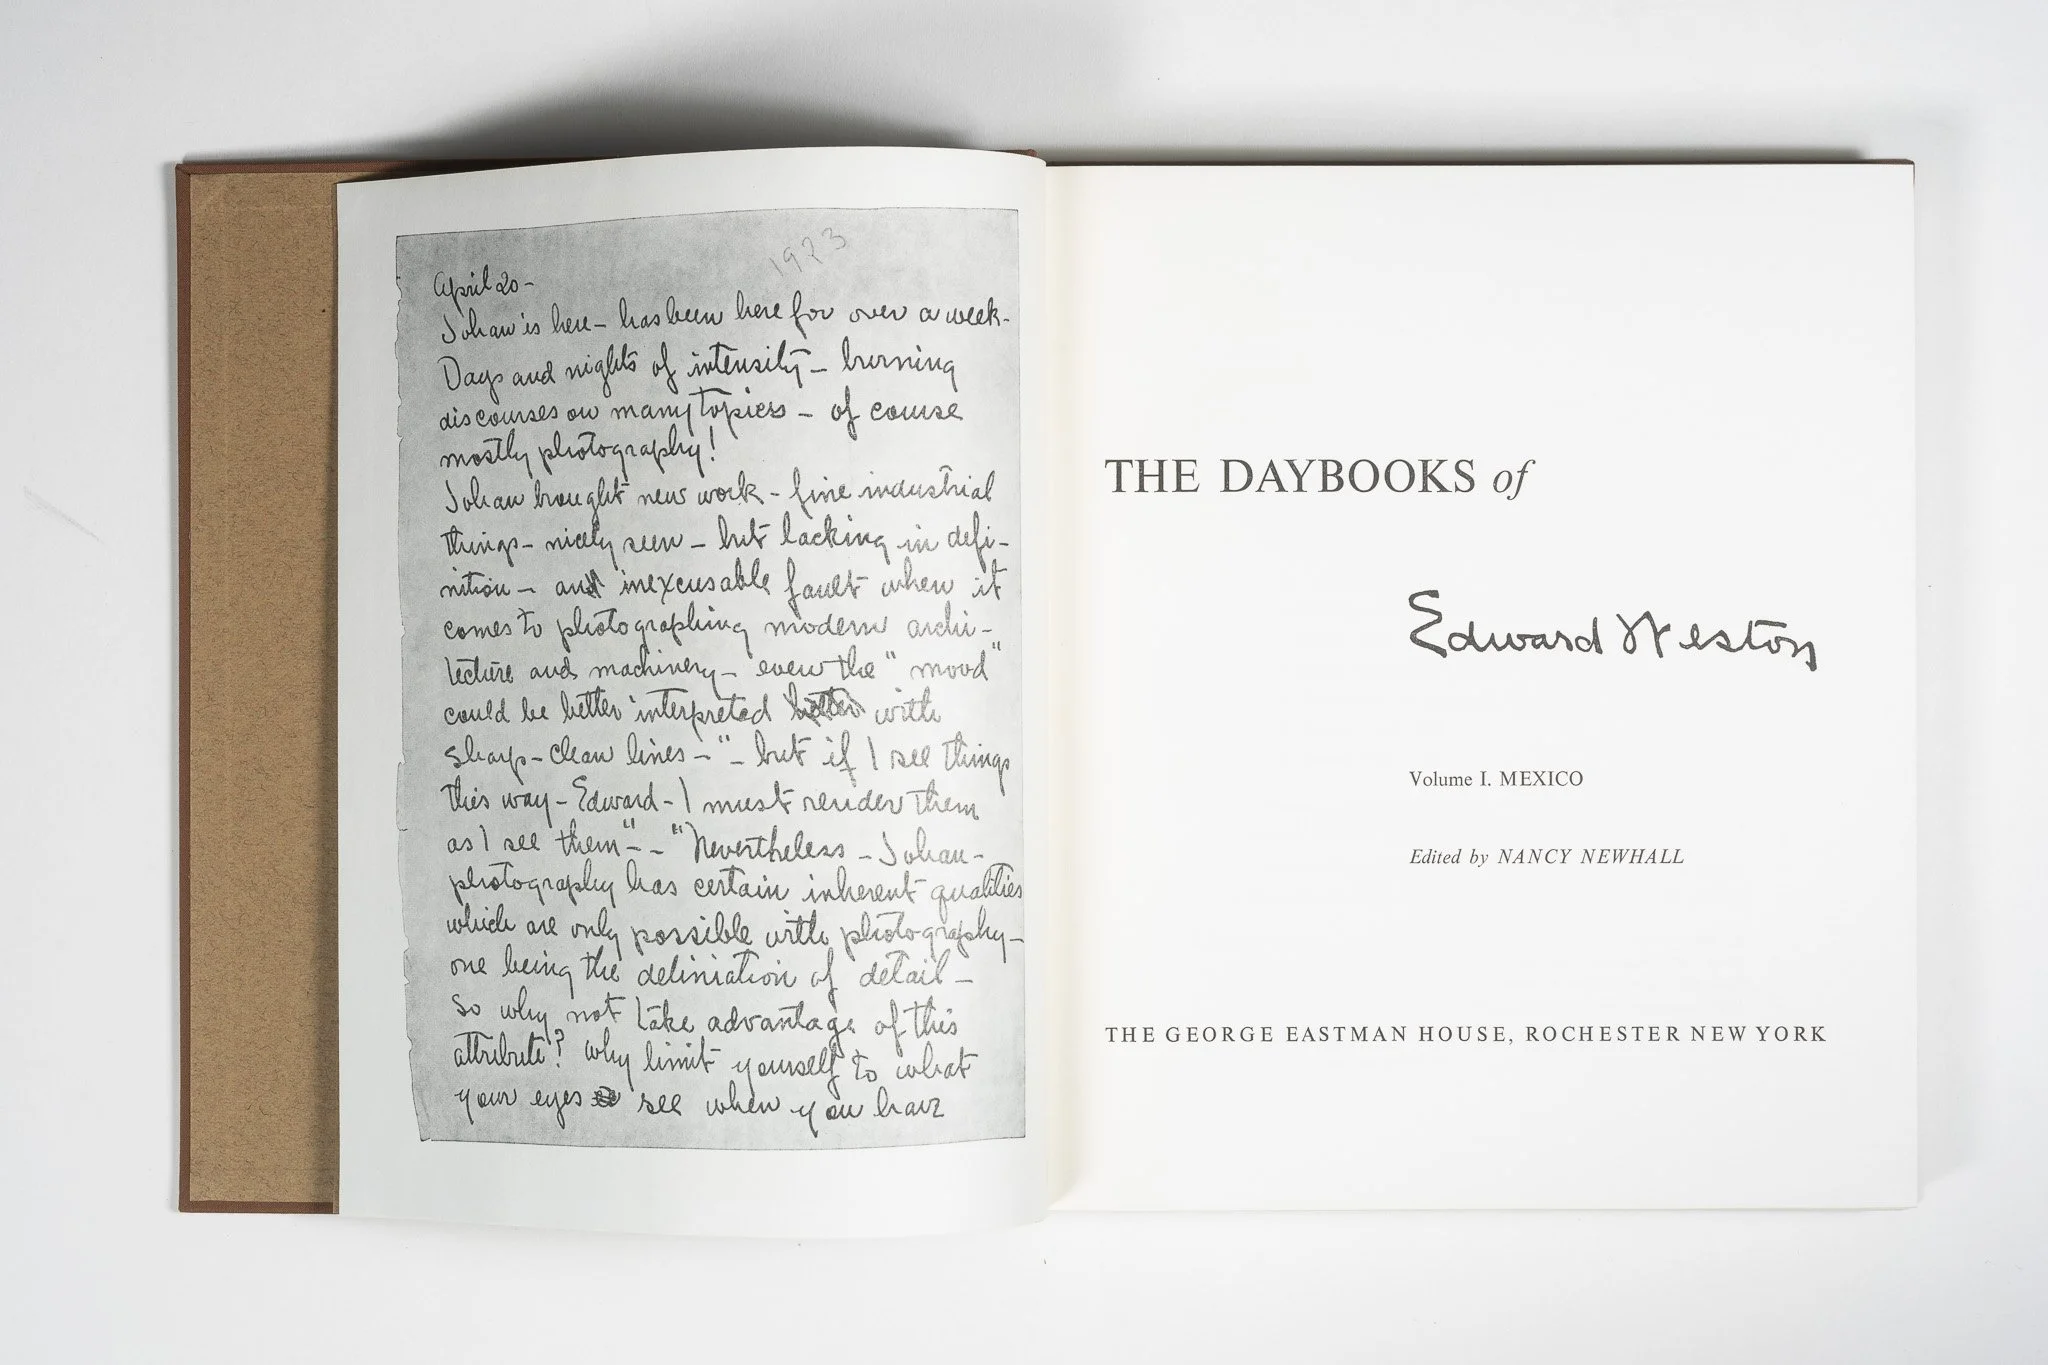 1923
April 20 –
Johan is here – has been here for over a week –
Days and nights of intensity – burning
discourses on many topics – of course
mostly photography!
Johan brought new work – fine industrial
things – nicely seen – but lacking in defi-
nition – and inexcusable fault when it
comes to photographing modern archi-
tecture and machinery – even the "mood"
could be better interpreted with
sharp – clean lines – " – but if I see things
this way – Edward – I must render them
as I see them" – – "Nevertheless – Johan –
photography has certain inherent qualities
which are only possible with photography –
one being the deliniation of detail –
So why not take advantage of this
attribute? Why limit yourself to what
your eyes see when you have
THE DAYBOOKS of
Edward Weston
Volume I. MEXICO
Edited by NANCY NEWHALL
THE GEORGE EASTMAN HOUSE, ROCHESTER NEW YORK